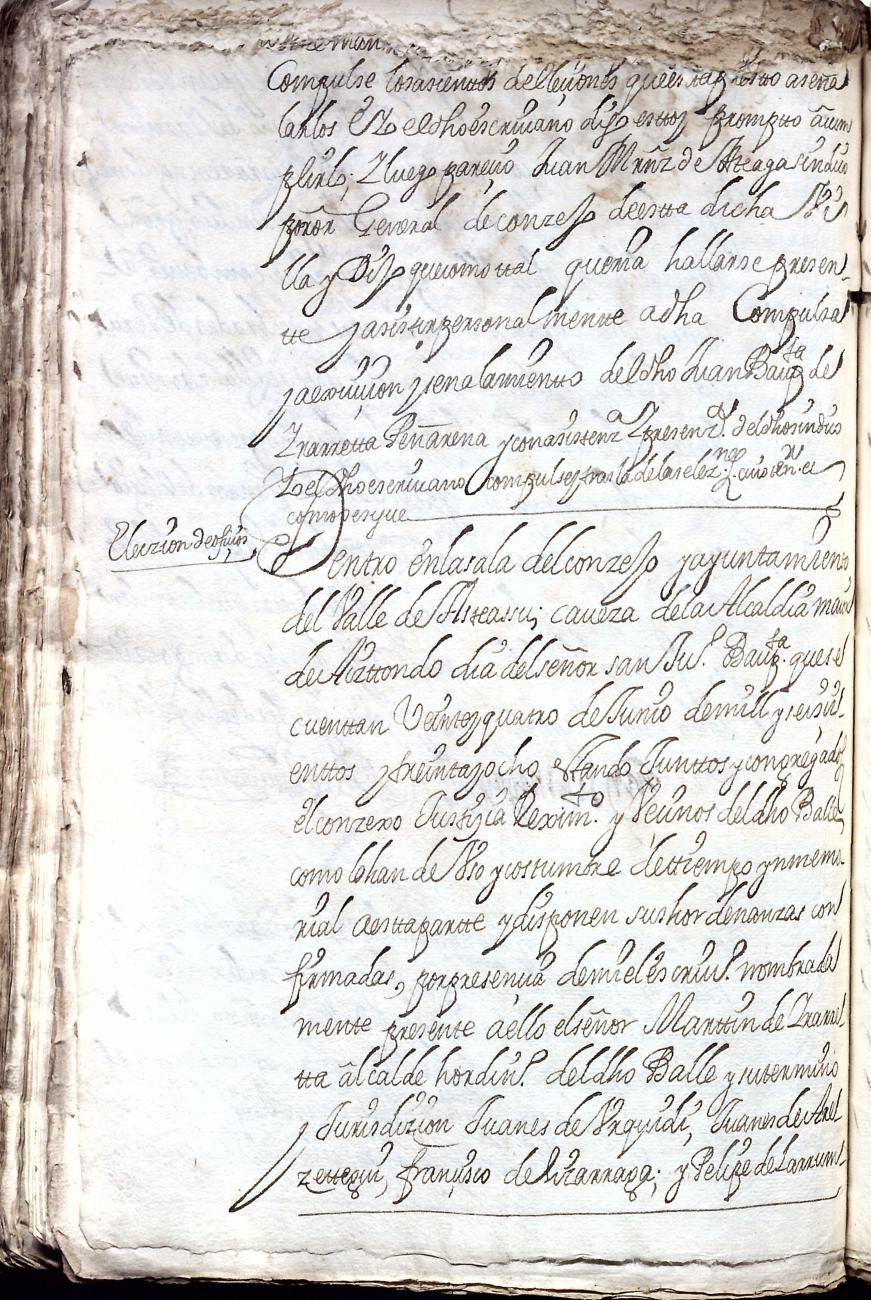 Compulse los asientos de elecciones que esta presto a senta
larlos El el dho escriuano dijo estoy prompto a cum
plirlo; Y luego parecio Juan Mrnz de Ateaga sindico
procor General de conzejo de esta dicha Vi
lla y Dijo que como tal queria hallarse presen
te y asistir personalmente a dha Compulsa
y a execucion y senalamiento del dho Juan Baupta de
Yrarretta Peñarena y con asistenza Y presenza del dho sindico
Y el dho escriuano compulse y traslade las elecnes
como se sigue
Elezion de ofiçios
Dentro en la sala del conzejo y ayuntamiento
del Valle de Asteassu; caveza de la Alcaldia maior
de Aiztondo dia del señor san Juo Baupta que se
cuenttan Veinte y quatro de Junio de mill y seisci
enttos y treinta y ocho estando Junttos y congregados
el conzexo Justiçia Reximto y Veçinos del dho Balle
como lo han de Vso y costumbre de ttiempo ynmemo
rial a esta partte y disponen sus hordenanzas con
firmadas, por presencia de mi el escriuo nombrada
mente presente a ello el señor Marttin de Yrarre
tta alcalde hordino del dho Balle y su termino
y Jurisdizion Juanes de Vrquidi, Juanes de Arel
zettegui, françisco de Lizarraga; y Felipe de Larrume